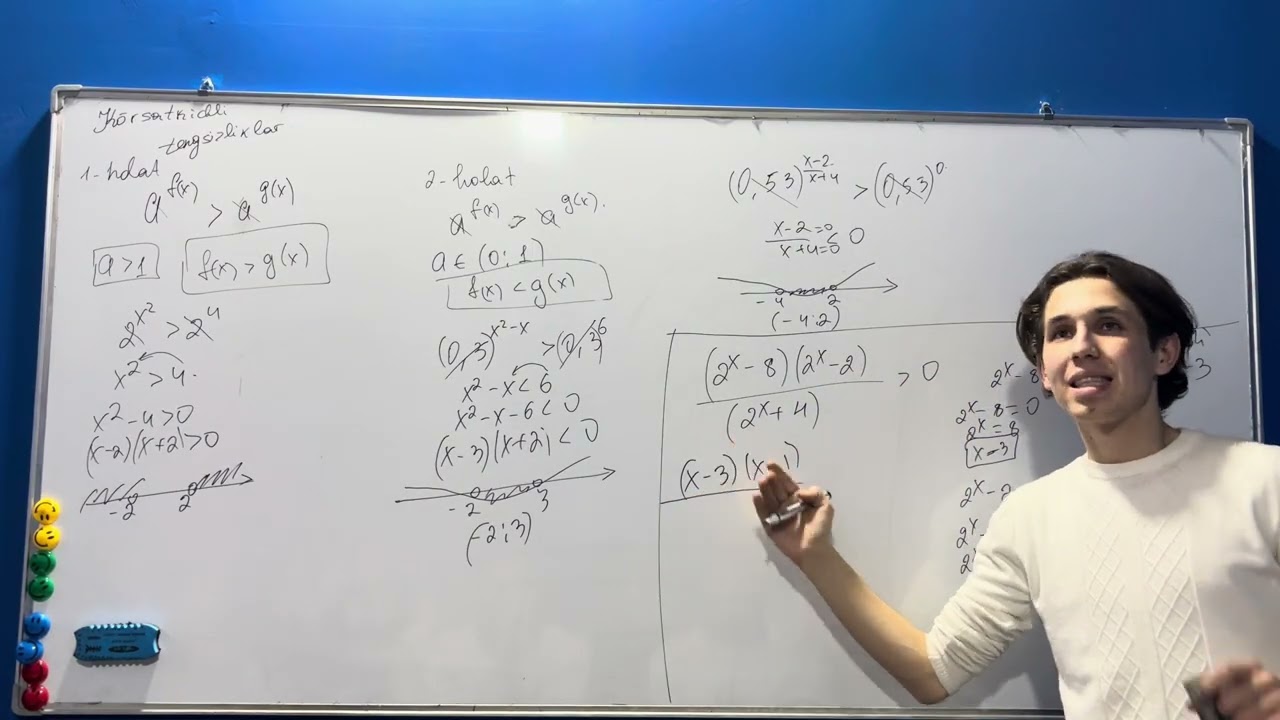 Ko'rsatkichli
tengsizliklar
1-holat
a^f(x) > a^g(x)
a>1
f(x) > g(x)
2^x² > 2^4
x² > 4
x²-4>0
(x-2)(x+2)>0
-2 2
2-holat
a^f(x) > a^g(x).
a ∈ (0;1)
f(x) < g(x)
(0,3)^x²-x > (0,3)^6
x²-x<6
x²-x-6<0
(x-3)(x+2)<0
-2 3
(-2;3)
(0,53)^(x-2)/(x+4) > (0,53)^0
x-2=0
x+4=0
< 0
-4 2
(-4;2)
(2^x-8)(2^x-2)
> 0
(2^x+4)
(x-3)(x-1)
2^x-8
2^x-8=0
2^x=8
x=3
2^x-2